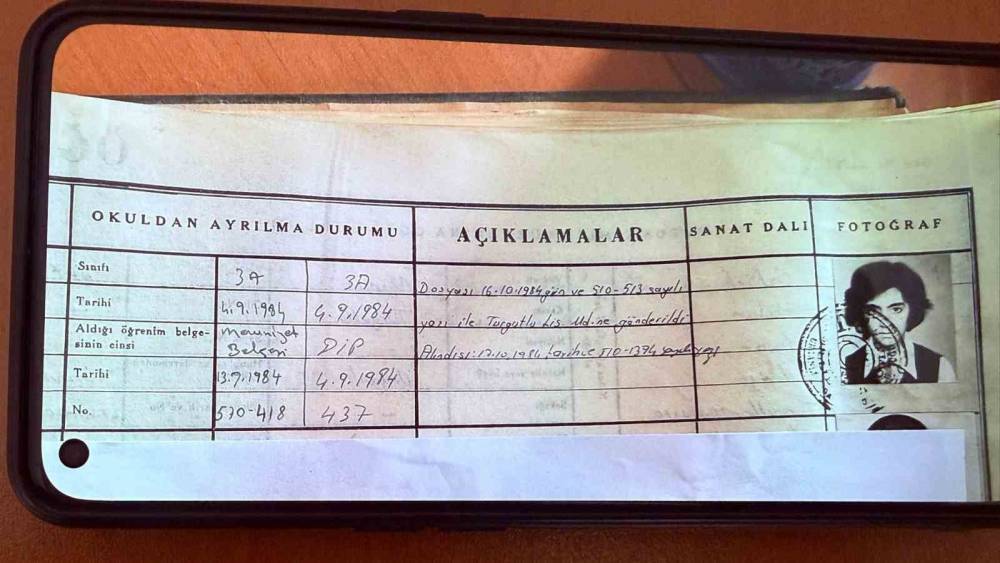 OKULDAN AYRILMA DURUMU
AÇIKLAMALAR
SANAT DALI
FOTOĞRAF
Sınıfı
3A
3A
Dosyası 16.10.1984 gün ve 510-513 sayılı
Tarihi
4.9.1984
4.9.1984
yazı ile Turgutlu Lis. Md.ne gönderildi
Aldığı öğrenim belge-
sinin cinsi
Mezuniyet
Belgesi
DİP
Alındısı: 17.10.1984 tarih ve 510-1394 sayılı yazı
Tarihi
13.9.1984
4.9.1984
No.
570-418
437